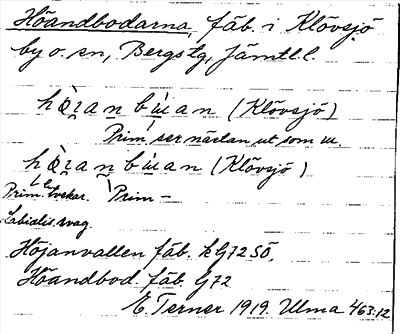 Höandbodarna, fäb. i Klövsjö
by o. sn, Bergs tg, Jämtl. l.
(Klövsjö)
Prim. ser nästan ut som w.
(Klövsjö)
Prim. tvekar. Prim –
Labialis. svag.
Höjanvallen fäb. k G72 SÖ,
Höandbod. fäb. G72
E. Terner 1919. Ulma 463:12